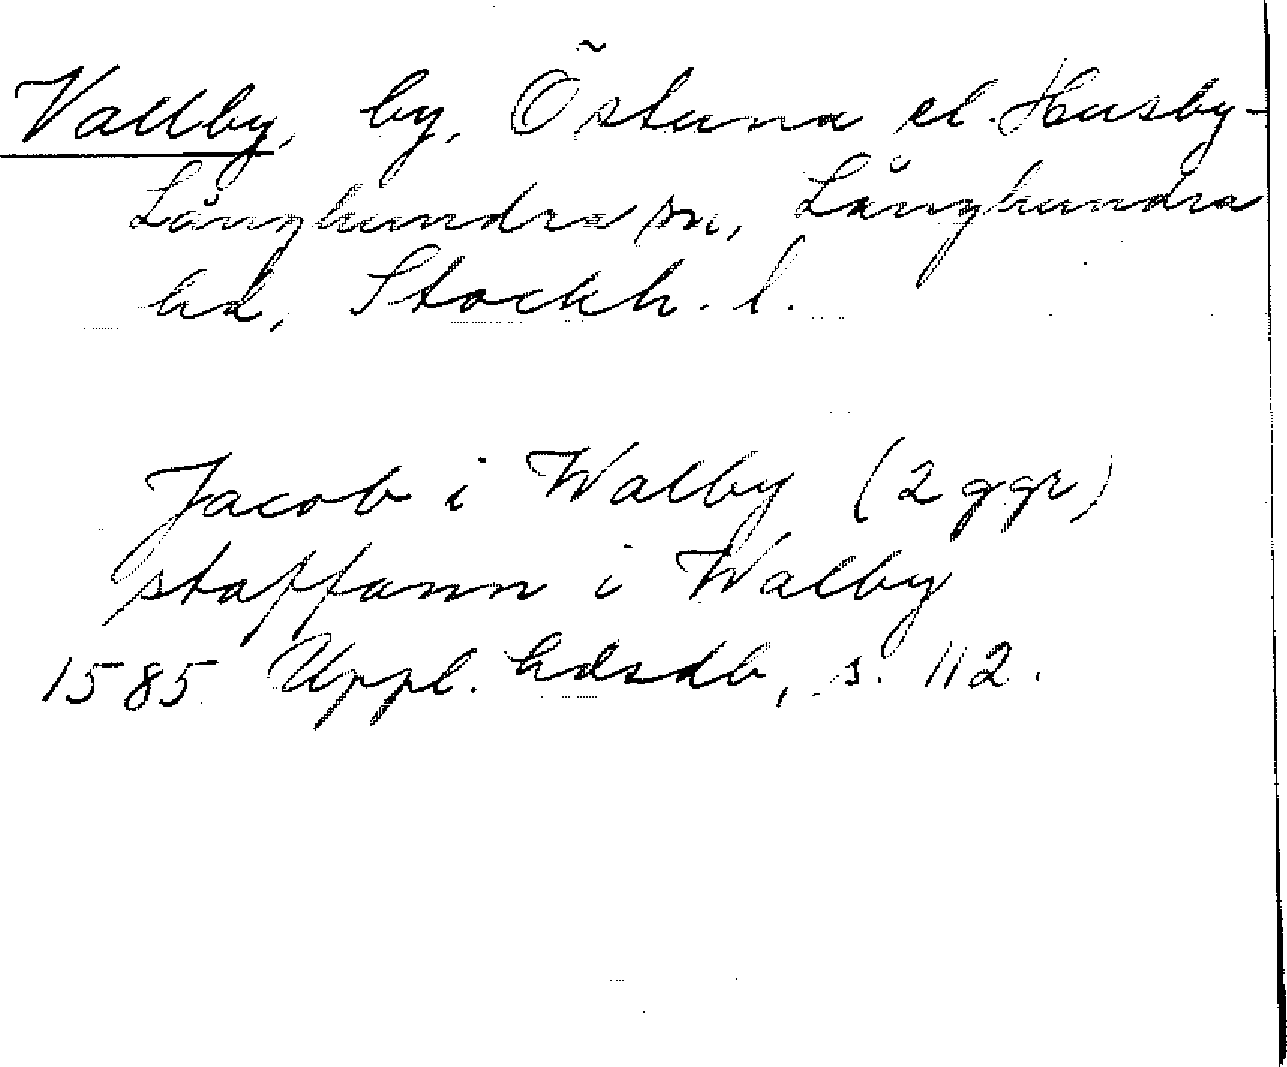 Vallby, by, Östuna el. Husby-
Långhundra sn, Långhundra
hd, Stockh. l.
Jacob i Walby (2 ggr)
staffann i Walby
1585 Uppl. hdsdb, s. 112.